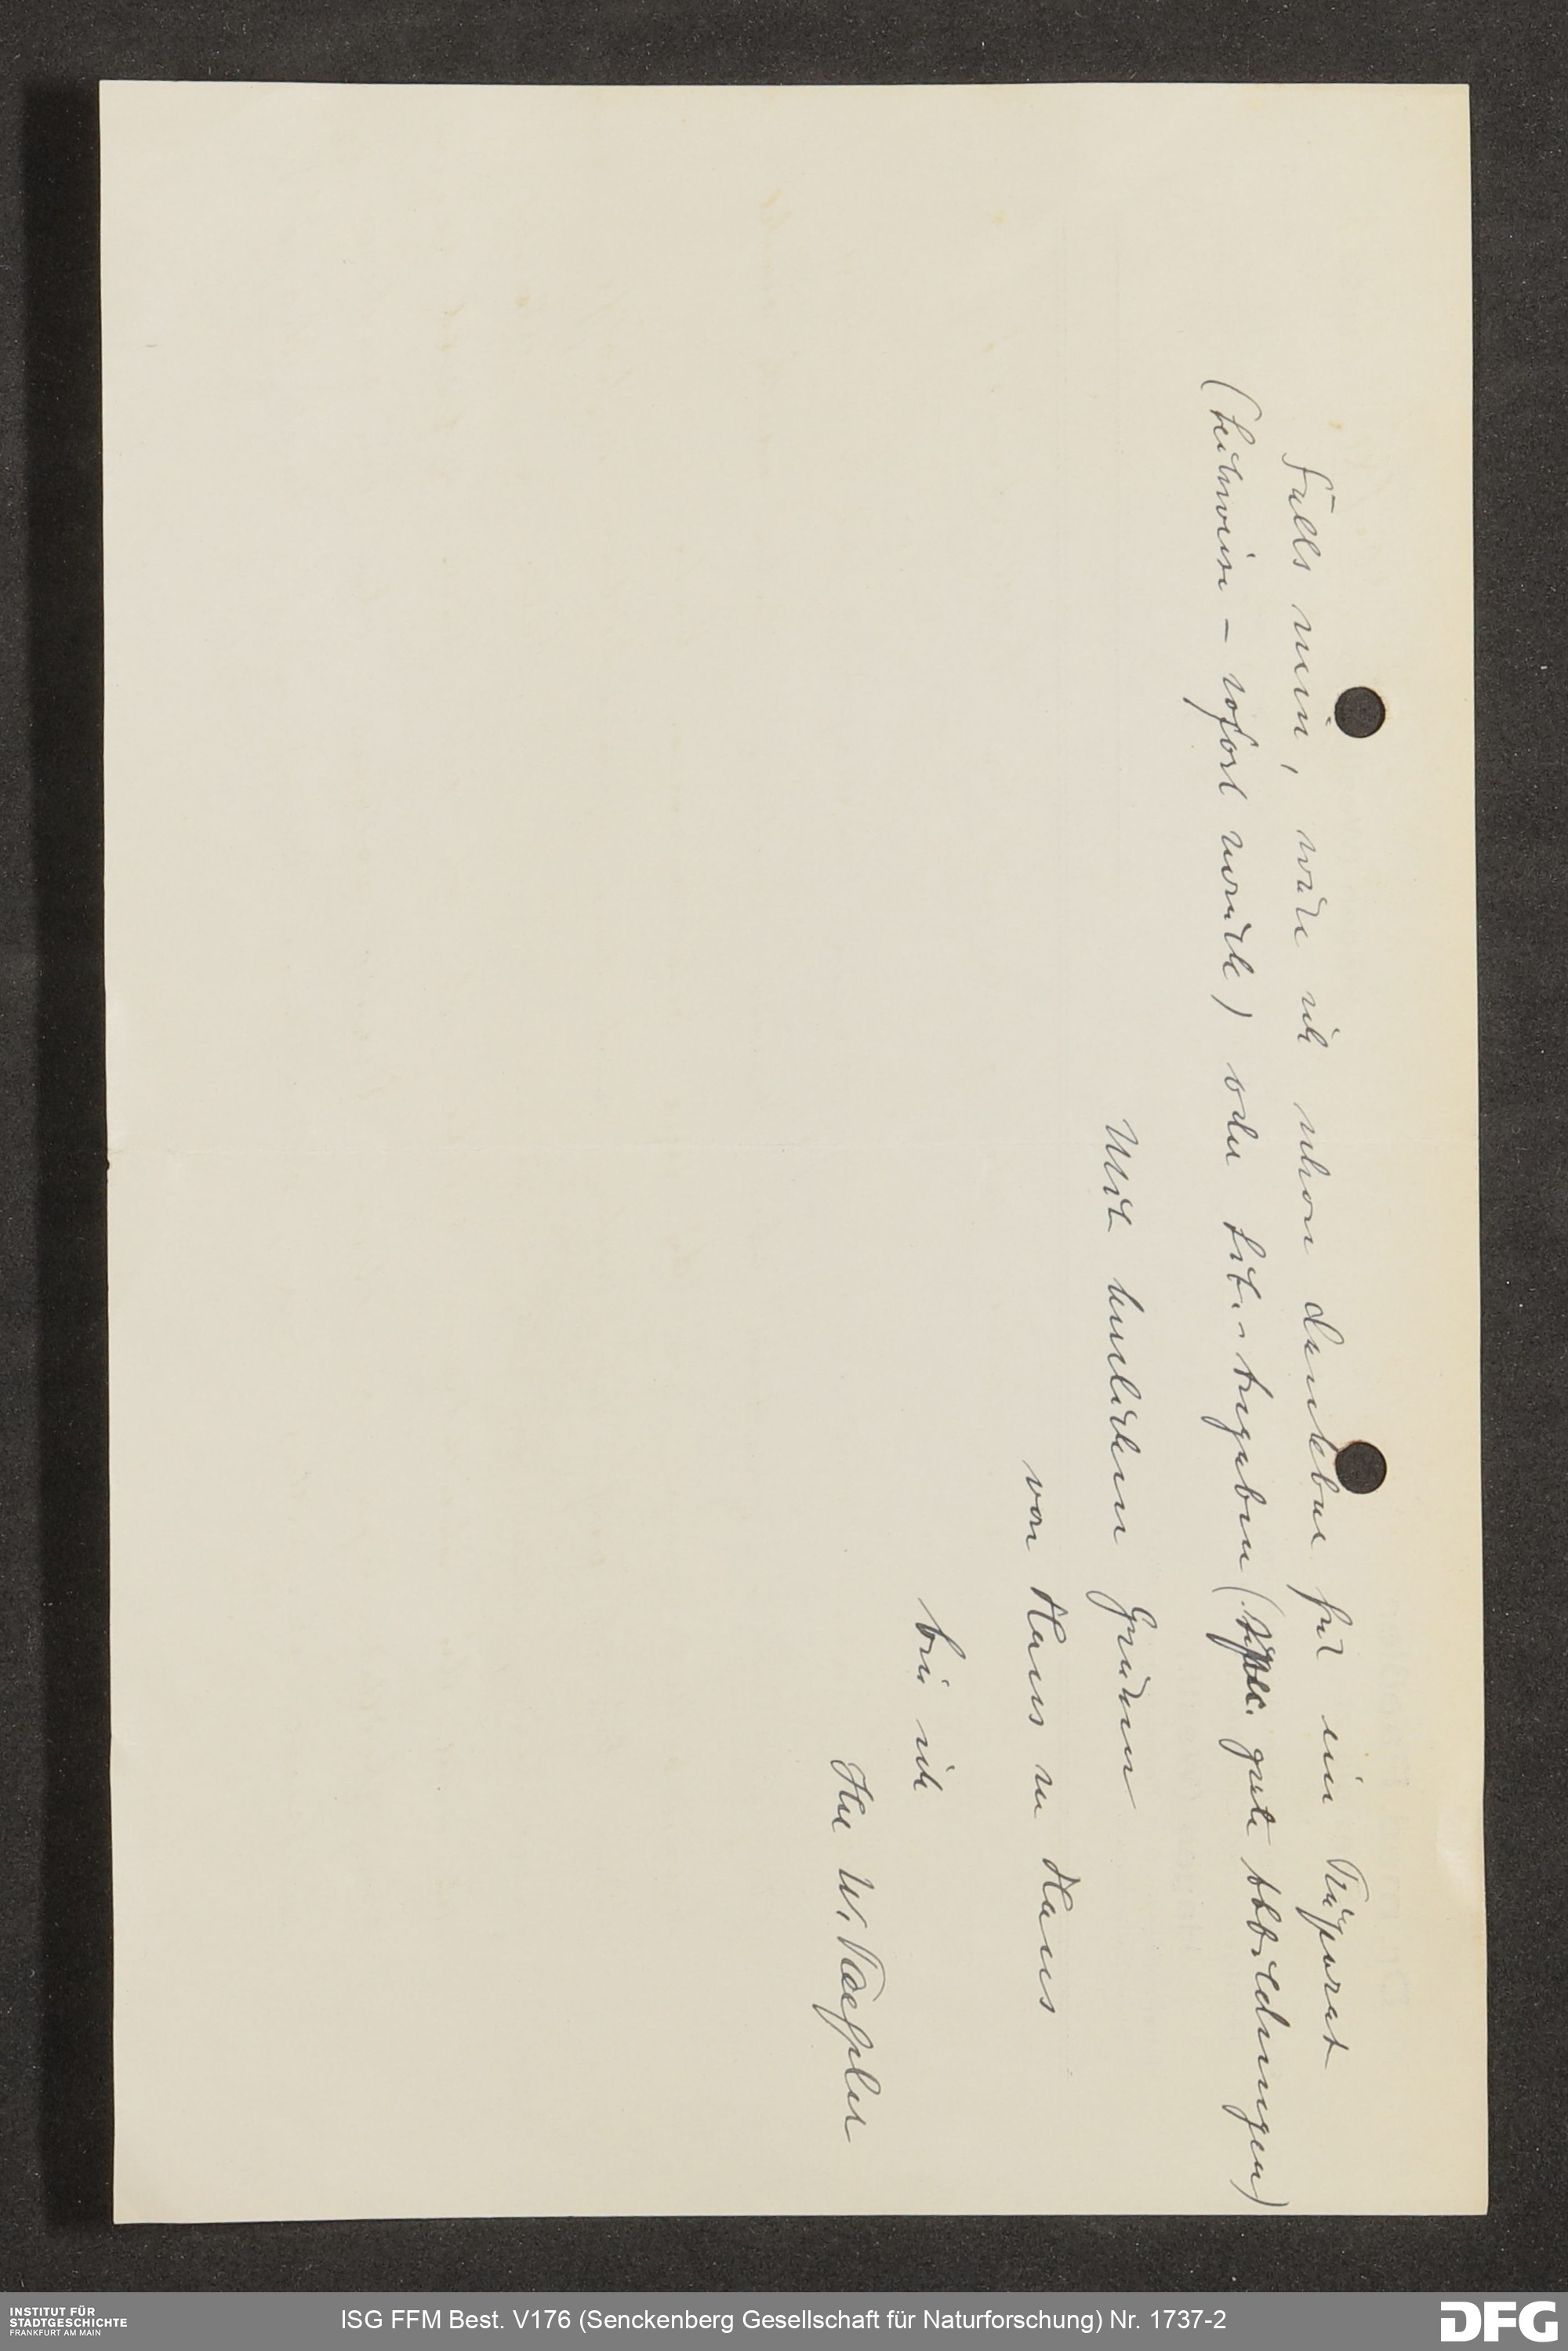 Falls nein, wäre ich schon dankbar für ein Präparat
(leihweise – sofort zurück) oder Lit.-Angaben (spec. gute Abbildungen)
Mit herzlichen Grüssen
von Haus zu Haus
bin ich
Ihr W.
INSTITUT FÜR
STADTGESCHICHTE
FRANKFURT AM MAIN
ISG FFM Best. V176 (Senckenberg Gesellschaft für Naturforschung) Nr. 1737-2
DFG